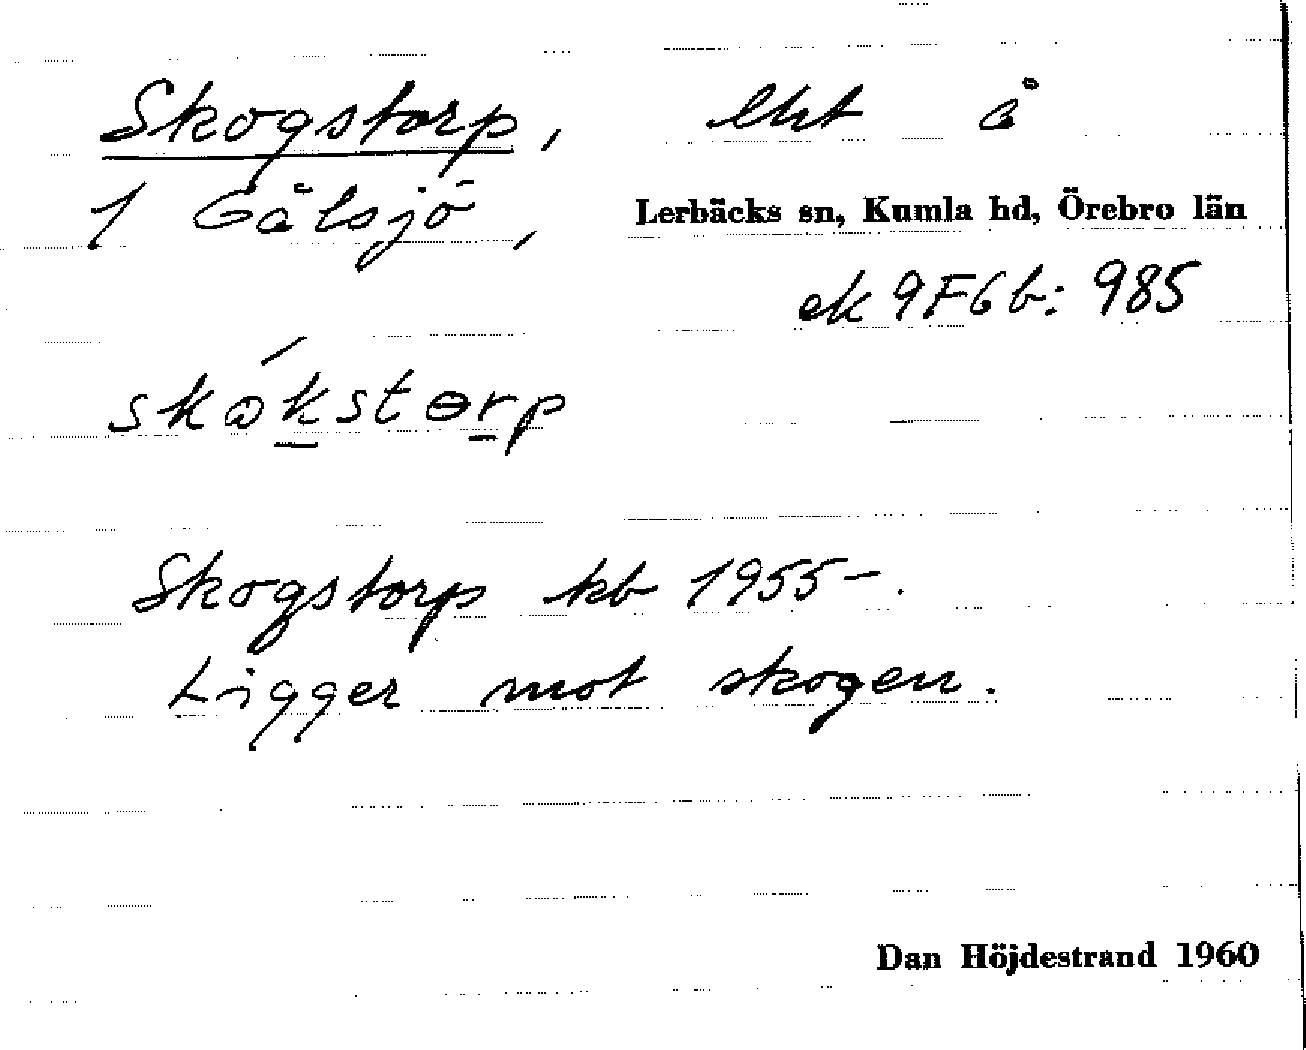 Skogstorp, lht å
1 Gålsjö, Lerbäcks sn, Kumla hd, Örebro län
ek 9F6b: 985
skɷ́kstɵrp
Skogstorp kb 1955–.
Ligger mot skogen.
Dan Höjdestrand 1960